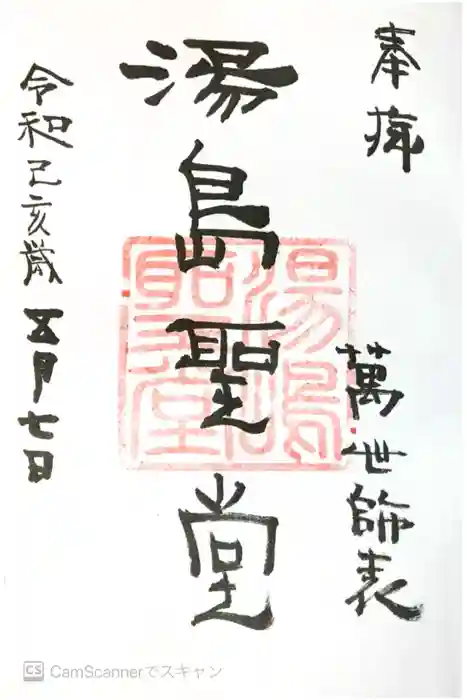 奉拝
萬世師表
湯島聖堂
湯島聖堂
令和己亥歳五月七日
CS CamScannerでスキャン